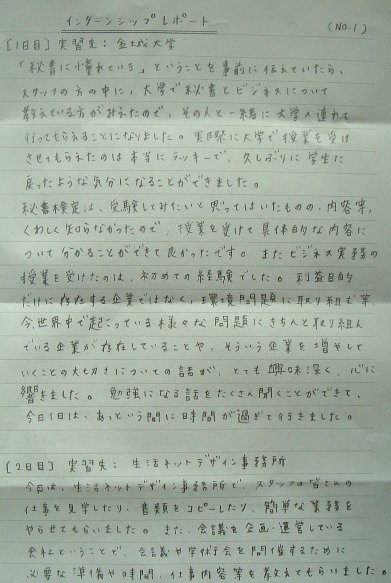 インターンシップレポート
(NO.1)
[1日目] 実習先：金城大学
「秘書に憧れている」ということを事前に伝えていたら、
スタッフの方の中に、大学で秘書とビジネスについて
教えている方がみえたので、その人と一緒に大学へ連れて
行ってもらえることになりました。実際に大学で授業を受け
させてもらえたのは本当にラッキーで、久しぶりに学生に
戻ったような気分になることができました。
秘書検定は、受験してみたいと思ってはいたものの、内容等、
くわしく知らなかったので、授業を受けて具体的な内容に
ついて分かることができて良かったです。またビジネス実務の
授業を受けたのは、初めての経験でした。利益目的
だけに存在する企業ではなく、環境問題に取り組む等、
今世界中で起こっている様々な問題にきちんと取り組ん
でいる企業が存在していることや、そういう企業を増やして
いくことの大切さについての話が、とても興味深く、心に
響きました。勉強になる話をたくさん聞くことができて、
今日1日は、あっという間に時間が過ぎて行きました。
[2日目] 実習先：生活ネットデザイン事務所
今日は、生活ネットデザイン事務所で、スタッフの皆さんの
仕事を見学したり、書類をコピーしたり、簡単な業務を
やらせてもらいました。また、会議を企画・運営している
会社ということで、会議や学術会を開催するために
必要な準備や時間、仕事内容等を教えてもらいました。